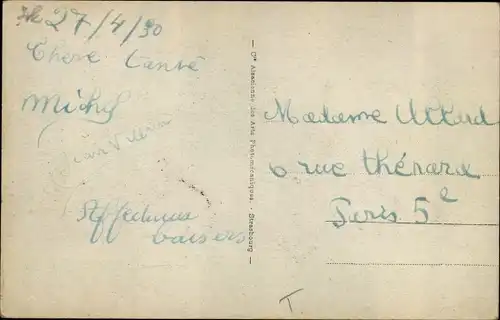 27/4/30
Chere tante
Michel
Affectueux
baisers
— Cie Alsacienne des Arts Photomécaniques, Strasbourg —
Madame
6 rue Thénard
Paris 5e
T